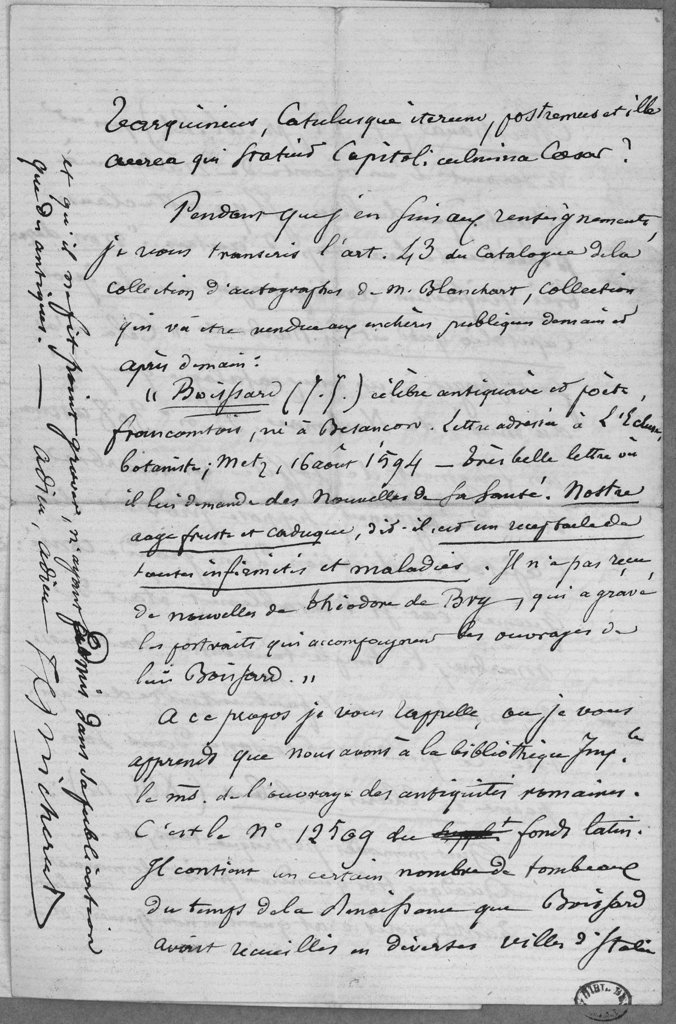 Tarquinius, Catulusque iterum, postremus et ille
aurea qui statuit Capitoli culmina Caesar ?
Pendant que j'en suis aux renseignements,
je vous transcris l'art. 43 du Catalogue de la
collection d'autographes de M. Blanchart, collection
qui va etre vendue aux enchères publiques demain et
après demain :
" Boissard (J. J.) célèbre antiquaire et poète,
francomtois, né à Besancon. Lettre adressée à L'Ecluse,
botaniste ; Metz, 16 août 1594 — très belle lettre où
il lui demande des Nouvelles de sa Santé. Nostre
aage fruste et caduque, dit-il, est un receptacle de
toutes infirmités et maladies. Il n'a pas reçu
de nouvelles de théodore de Bry, qui a gravé
les portraits qui accompagnent les ouvrages de
lui Boissard. "
A ce propos je vous rappelle, ou je vous
apprends que nous avons à la bibliothèque Imp.le
le ms. de l'ouvrage des antiquités romaines.
C'est le n° 12509 du fonds latin.
Il contient un certain nombre de tombeaux
du temps de la Renaissance que Boissard
avait recueillis en diverses villes d'Italie
et qu'il ne fit point graver, n'ayant admis dans sa publication
que du antiques. — adieu, adieu